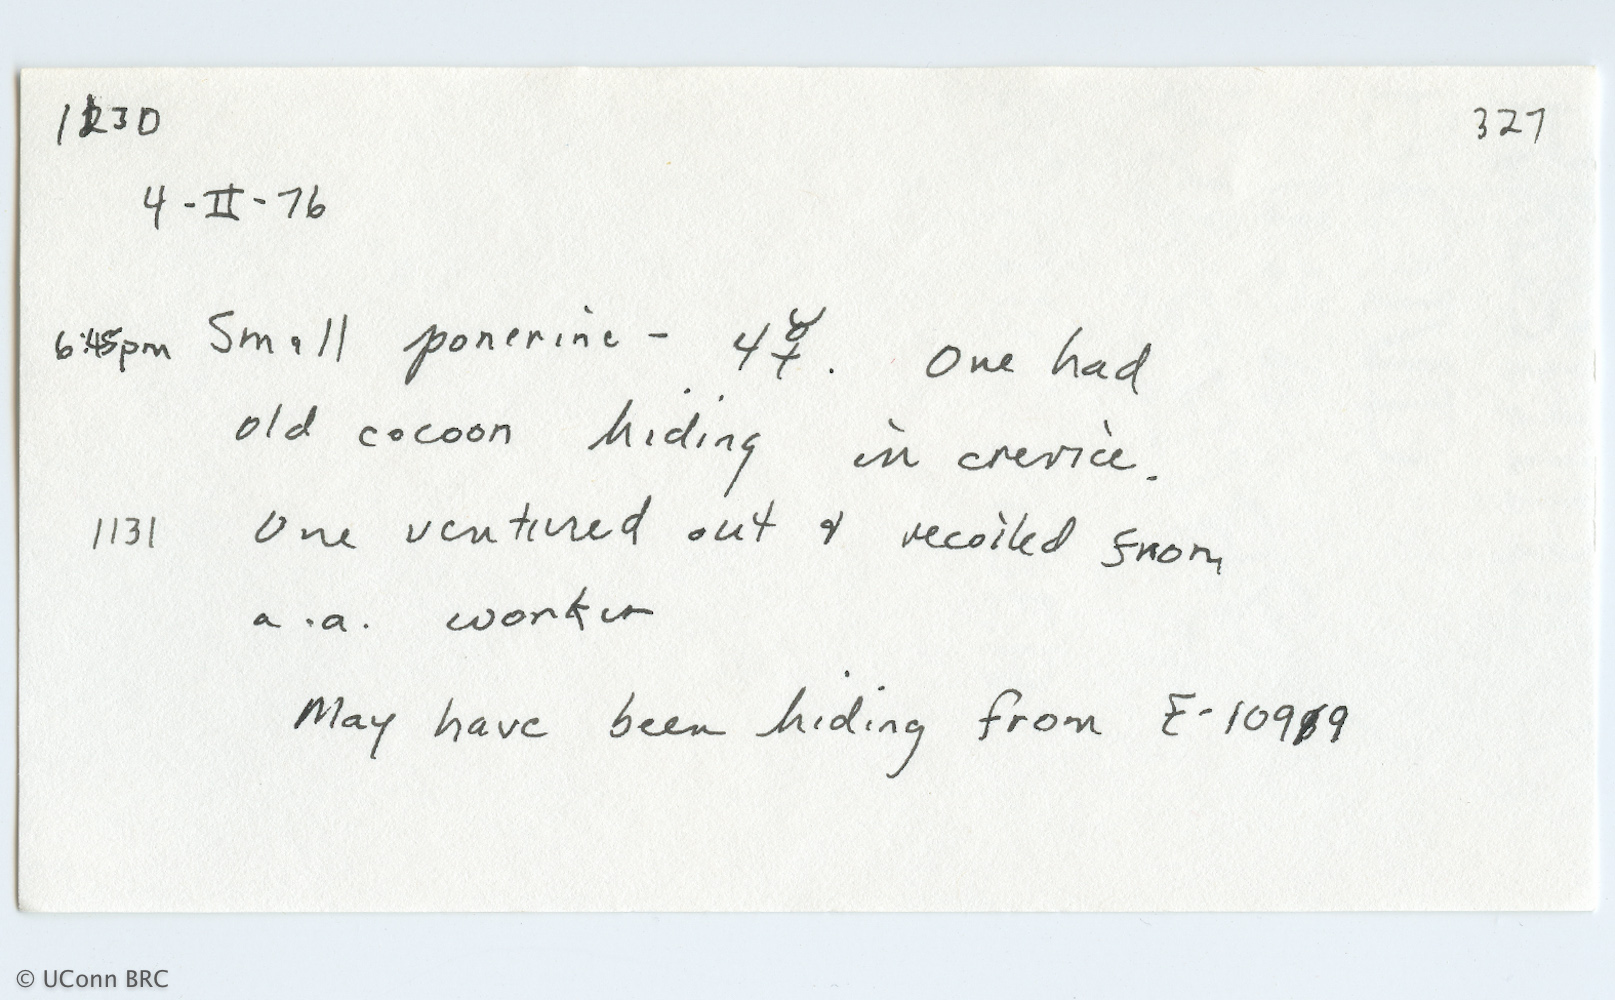 1130 327
4-II-76
6:45pm Small ponerine - 4☿. One had
old cocoon hiding in crevice.
1131 One ventured out & recoiled from
a.a. worker
May have been hiding from E-10919
© UConn BRC